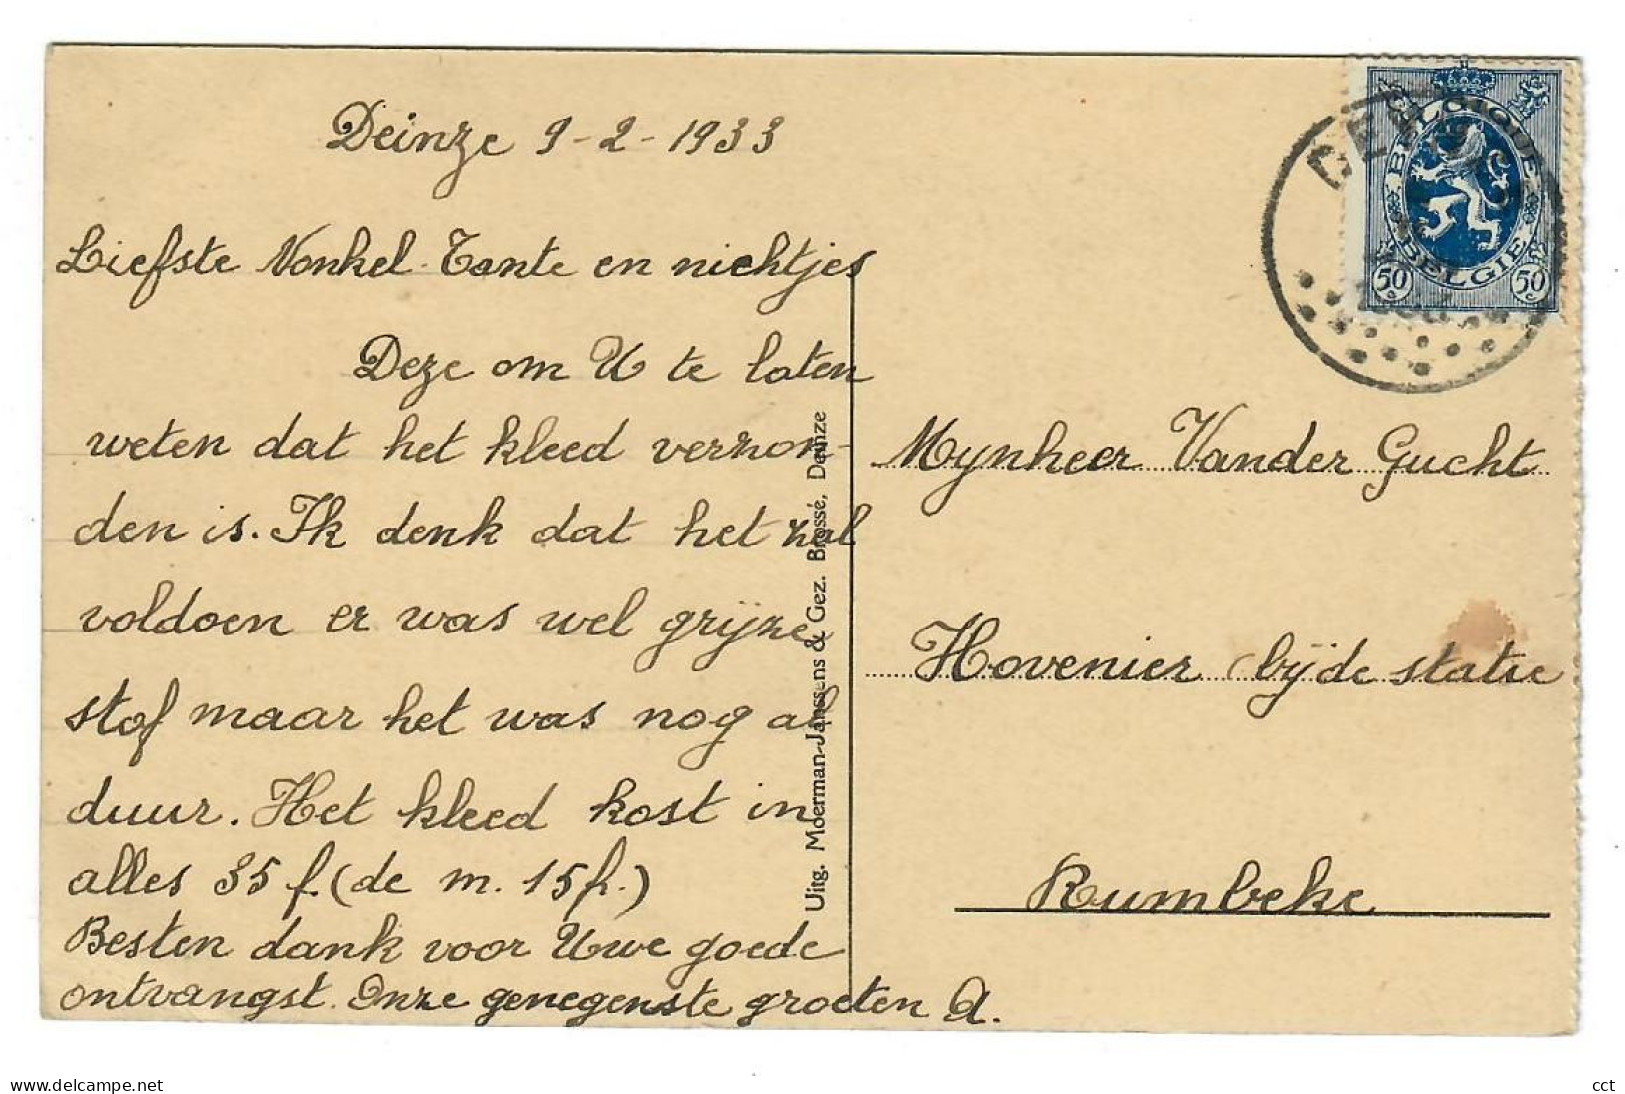 Deinze 9-2-1933
Liefste Nonkel Tante en nichtjes
Deze om U te laten
weten dat het kleed verzon-
den is. Ik denk dat het zal
voldoen er was wel grijze
stof maar het was nog al
duur. Het kleed kost in
alles 35 f. (de m. 15 fr.)
Besten dank voor Uwe goede
ontvangst. Onze genegenste groeten A.
Uitg. Moerman-Janssens & Gez. Brossé, Deinze
BELGIQUE
BELGIE
50 c 50 c
Mynheer Vander Gucht
Hovenier bij de statie
Rumbeke
www.delcampe.net
cct